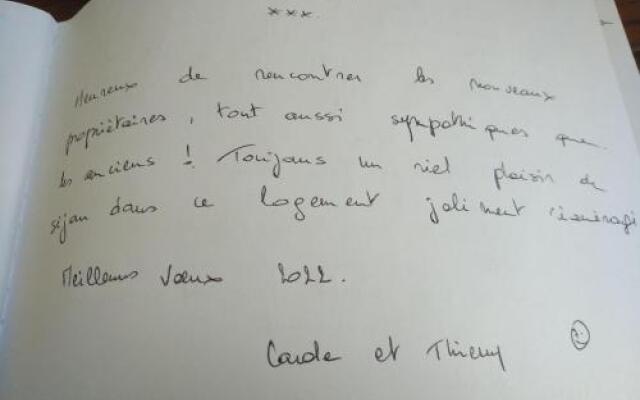 ***
Heureux de rencontrer les nouveaux
propriétaires, tout aussi sympathiques que
les anciens ! Toujours un réel plaisir de
séjour dans ce logement joliment réaménagé
Meilleurs Vœux 2022.
Carole et Thierry